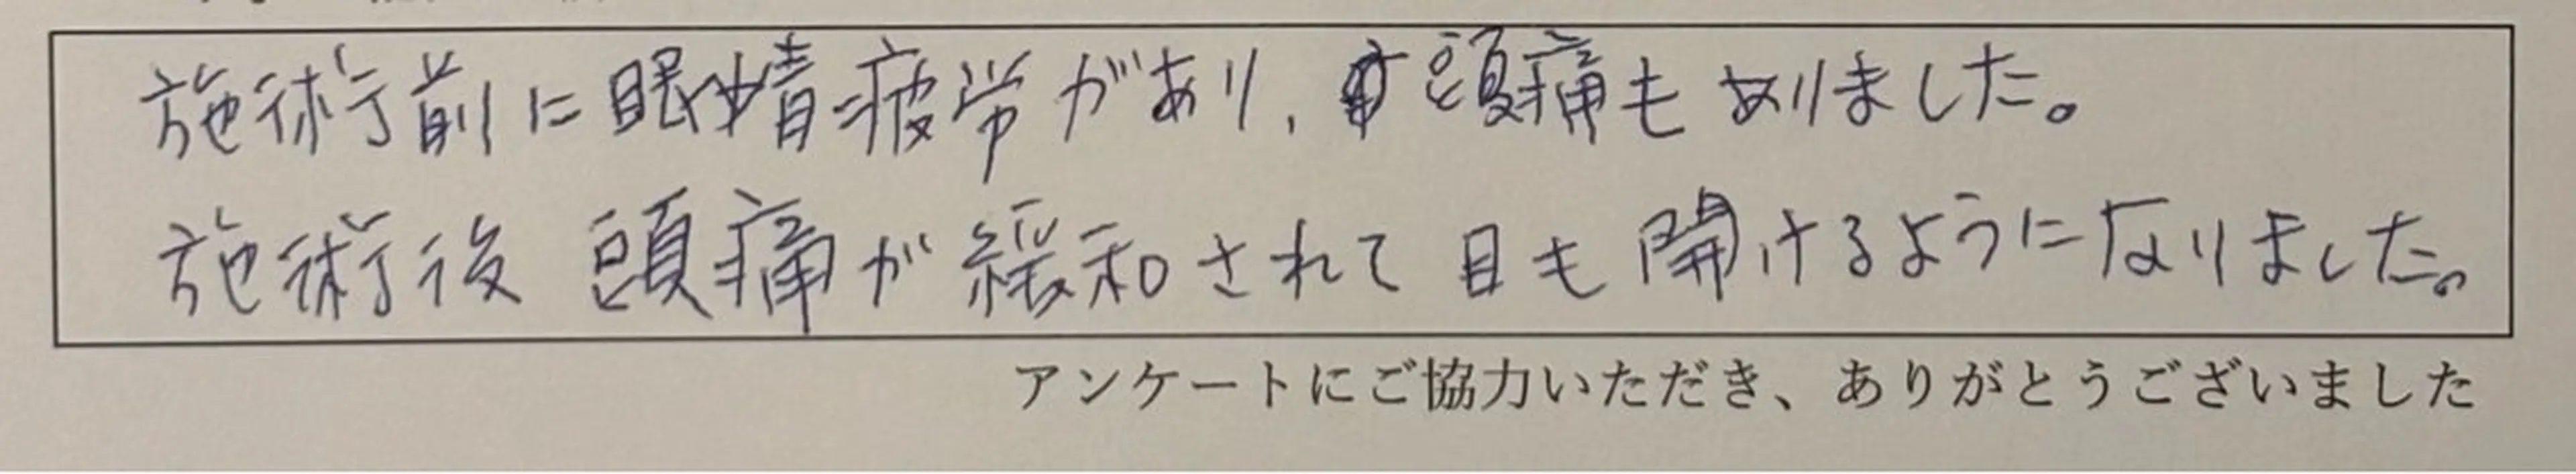 施術前に眼精疲労があり、頭痛もありました。
施術後 頭痛が緩和されて目も開けるようになりました。
アンケートにご協力いただき、ありがとうございました